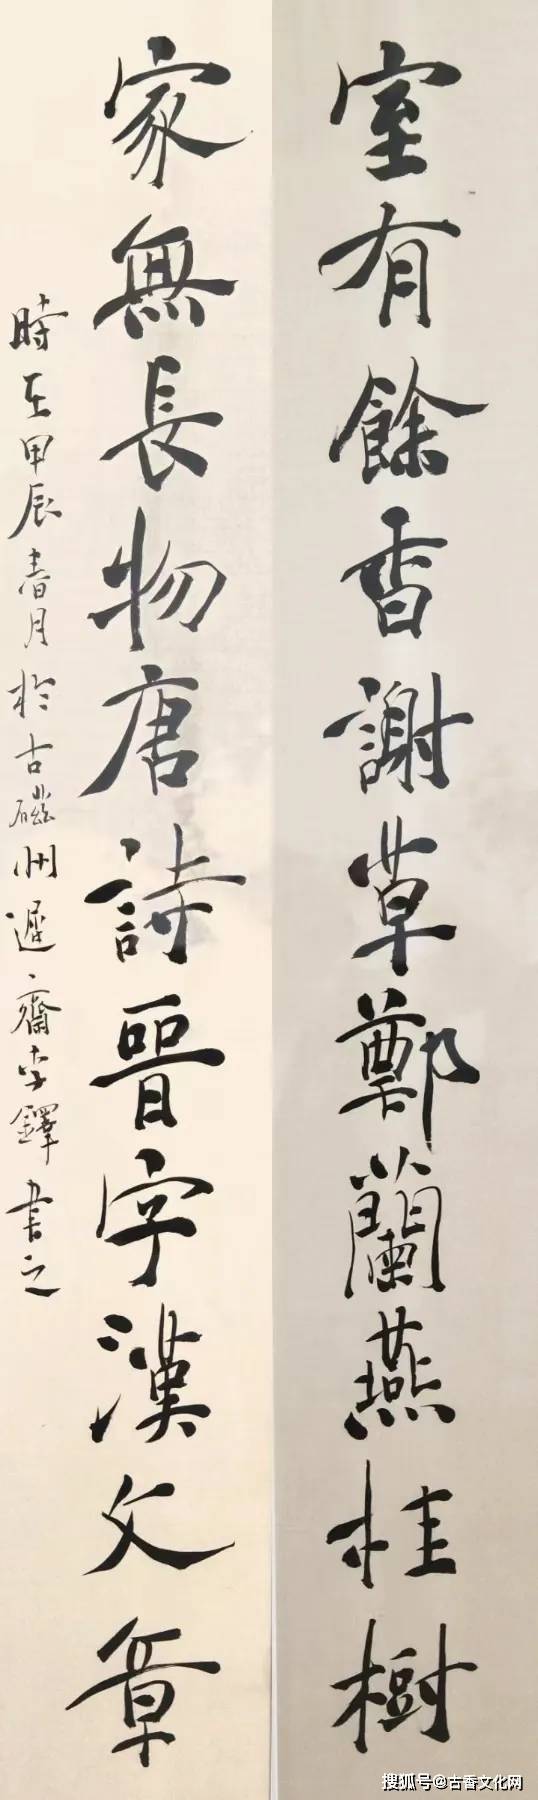 室有餘香謝草鄭蘭燕桂樹
家無長物唐詩晉字漢文章
時在甲辰春月於古磁州遲遲齋李鐸書之
搜狐号@古香文化网